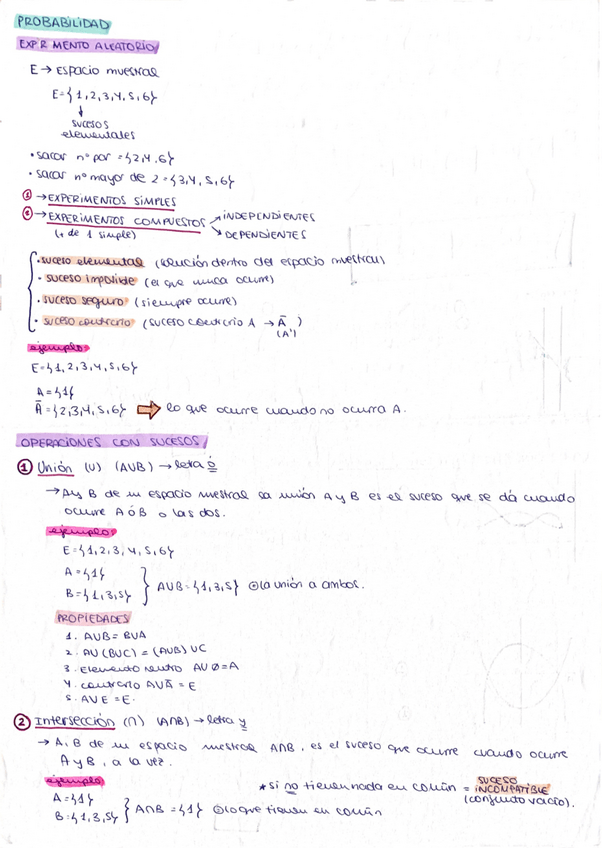 PROBABILIDAD
EXPERIMENTO ALEATORIO
E → Espacio muestral
E={1,2,3,4,5,6}
↓
sucesos
elementales
• sacar nº par = {2,4,6}
• sacar nº mayor de 2 = {3,4,5,6}
① → EXPERIMENTOS SIMPLES
② → EXPERIMENTOS COMPUESTOS → INDEPENDIENTES
(+ de 1 simple) → DEPENDIENTES
• suceso elemental (solución dentro del espacio muestral)
• suceso imposible (el que nunca ocurre)
• suceso seguro (siempre ocurre)
• suceso contrario (suceso contrario A → Ā )
(A')
ejemplo
E={1,2,3,4,5,6}
A={1}
Ā={2,3,4,5,6} ⇒ lo que ocurre cuando no ocurra A.
OPERACIONES CON SUCESOS
① Unión (U) (AUB) → letra ó
→ A y B de un espacio muestral la unión A y B es el suceso que se dá cuando
ocurre A ó B o las dos.
ejemplo
E={1,2,3,4,5,6}
A={1}
B={1,3,5} } AUB={1,3,5} la unión a ambos.
PROPIEDADES
1. AUB=BUA
2. AU(BUC)=(AUB)UC
3. Elemento neutro AUØ=A
4. contrario AUĀ=E
5. AUE=E.
② Intersección (∩) (A∩B) → letra y
→ A, B de un espacio muestral A∩B, es el suceso que ocurre cuando ocurre
A y B, a la vez.
ejemplo
* si no tienen nada en común = SUCESO INCOMPATIBLE
(conjunto vacío).
A={1}
B={1,3,5} } A∩B={1} lo que tienen en común